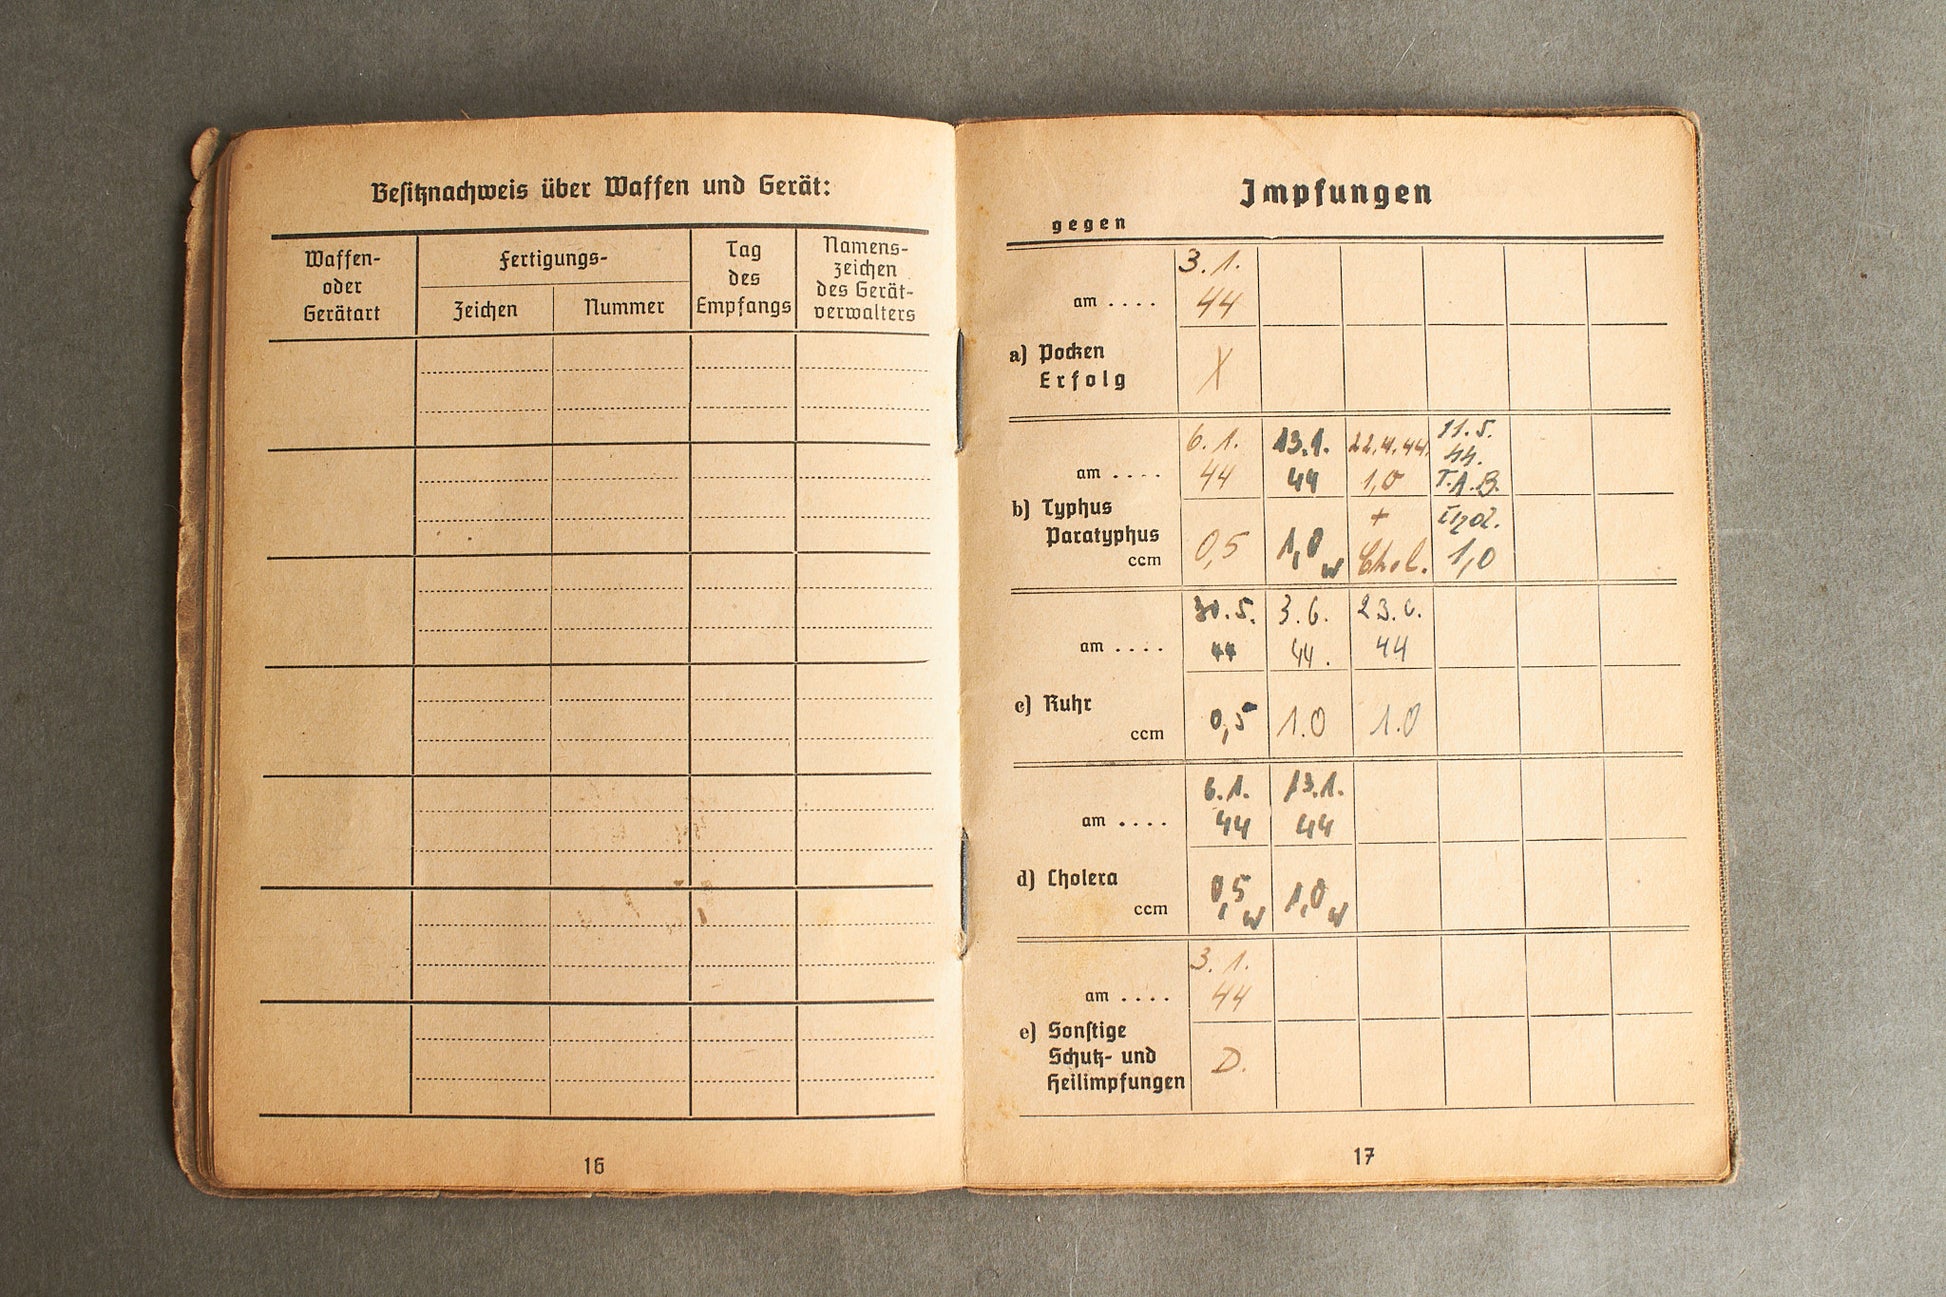 Besitznachweis über Waffen und Gerät:
Waffen-
oder
Gerätart
Fertigungs-
Zeichen
Nummer
Tag
des
Empfangs
Namens-
zeichen
des Gerät-
verwalters
16
Impfungen
gegen
3. 1.
am .... 44
a) Pocken
Erfolg X
6. 1. 13.1. 22.4.44. 11.5.
44.
am .... 44 44 1,0 T.A.B.
b) Typhus +
Paratyphus
ccm 0,5 1,0 w Chol. 1,0
30.5. 3.6. 23.6.
am .... 44 44. 44
c) Ruhr
ccm 0,5 1.0 1.0
6.1. 13.1.
am .... 44 44
d) Cholera
ccm 0,5 w 1,0 w
3. 1.
am .... 44
e) Sonstige
Schutz- und D.
Heilimpfungen
17